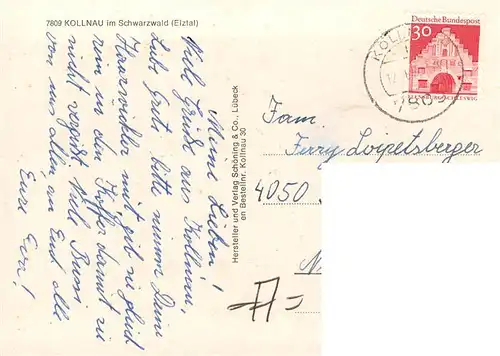 7809 KOLLNAU im Schwarzwald (Elztal)
Meine Lieben!
Viele Grüße aus Kollnau,
Liebe Gret bitte nimm Deine
Haarwickler mit, gib sie gleich
rein in den Koffer damit sie
nicht vergißt. Viele Bussi
von uns allen an Euch alle
Eure Eva!
Hersteller und Verlag Schöning & Co., Lübeck
en Bestellnr. Kollnau 30
Deutsche Bundespost
30
KOLLN
780
Fam
Ferry Loipetsberger
4050
N
A=